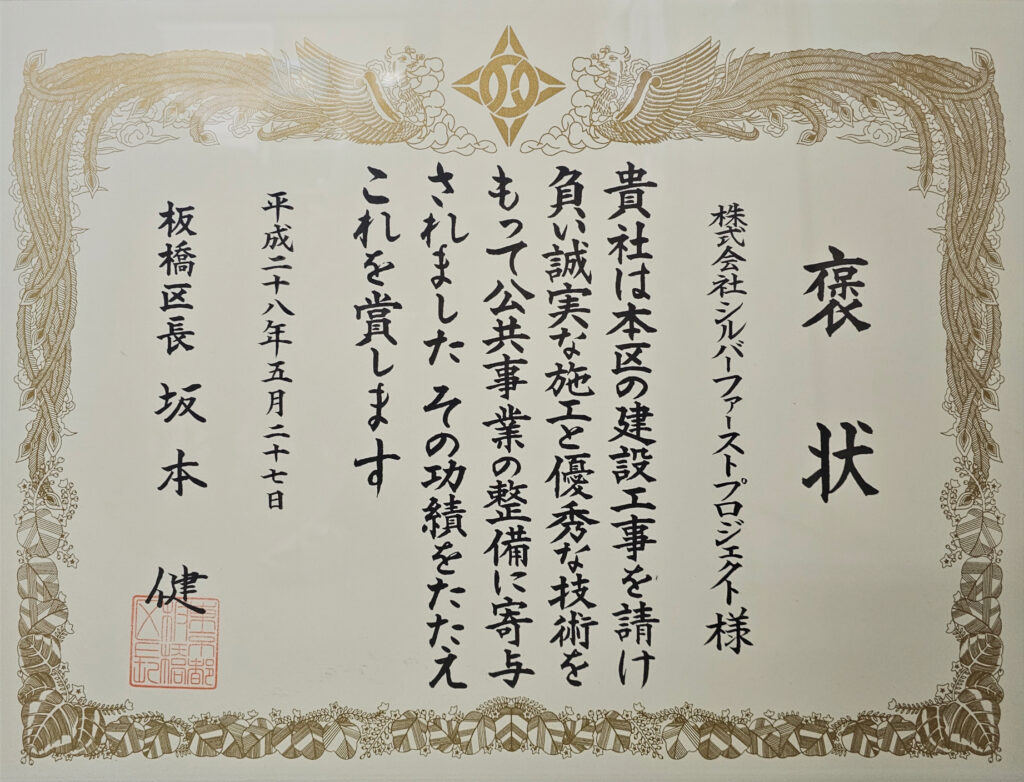 褒状
株式会社シルバーファーストプロジェクト 様
貴社は本区の建設工事を請け
負い誠実な施工と優秀な技術を
もって公共事業の整備に寄与
されました その功績をたたえ
これを賞します
平成二十八年五月二十七日
板橋区長 坂本 健
東京都板橋区長